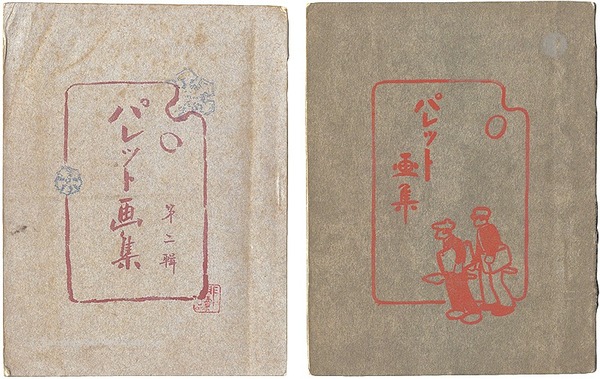 パレット画集
第二輯
パレット
画集